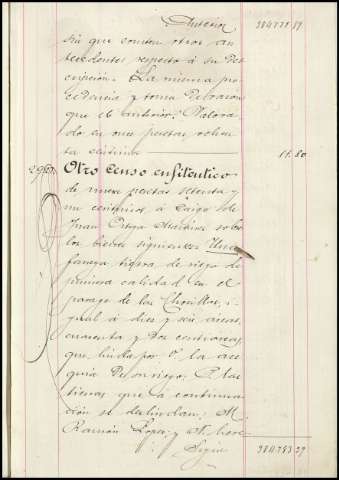 Anterior 384771.57
sin que consten otros an-
tecedentes respecto á su des
cripción. La misma pro
cedencia y toma de razon
que el anterior. Valora-
do en once pesetas ochen
ta centimos 11.80
Otro censo enfiteutico
de nueve pesetas setenta y
un centimos á cargo de
Juan Ortega Martinez sobre
los bienes siguientes Una
fanega, tierra de riego de
primera calidad en el
parage de las Chorillas, i-
gual á diez y seis areas,
cuarenta y dos centiareas,
que linda por O. la ace
quia de su riego. P. las
tierras que á continua
ción se deslindan; M.
Ramón Lopez y N. here
Sigue 384783.37